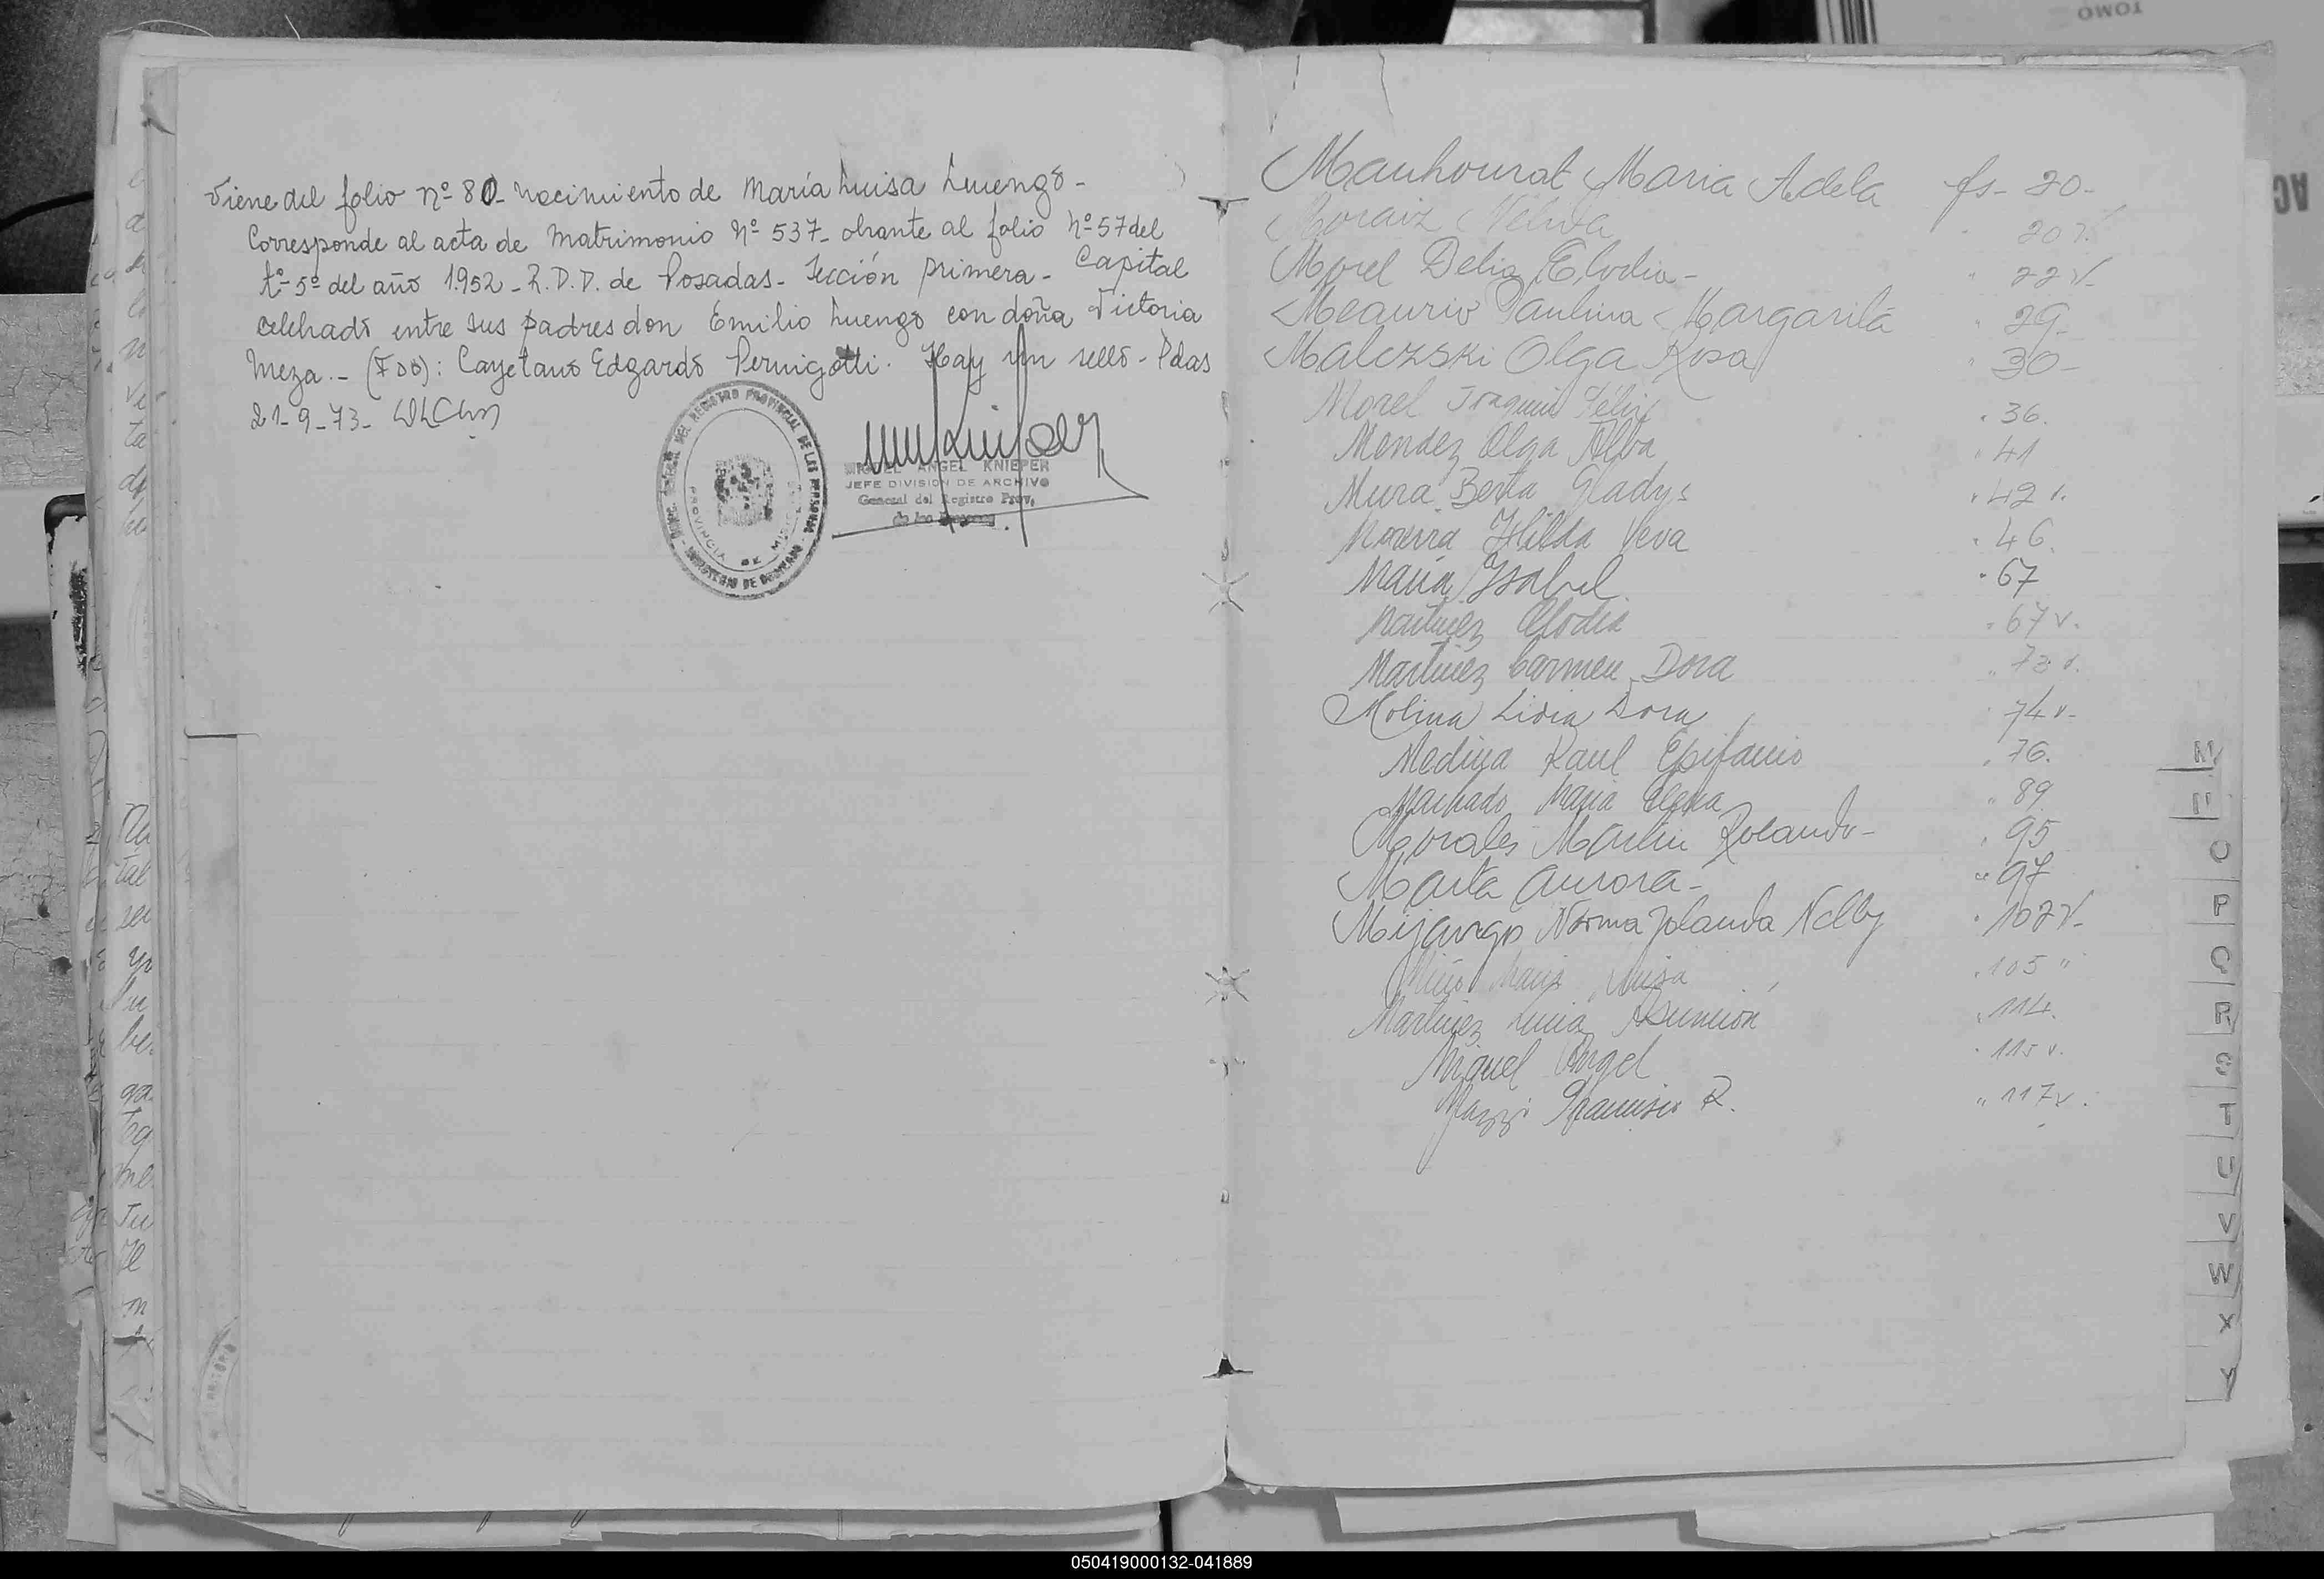 Viene del folio nº 80 - nacimiento de María Luisa Luengo -
Corresponde al acta de matrimonio Nº 537 - obrante al folio Nº 57 del
tº 5º del año 1.952 - R.D.P. de Posadas - Sección primera - Capital
celebrado entre sus padres don Emilio Luengo con doña Victoria
Meza.- (FDO): Cayetano Edgardo Pernigotti. Hay un sello - Pdas
21-9-73-
MIGUEL ANGEL KNIEPER
JEFE DIVISION DE ARCHIVO
General del Registro Prov.
de las Personas
PROVINCIA DE MISIONES
Manhourat Maria Adela fs- 20-
20 v.
Morel Delia Elodia - " 22 v-
Meaurio Paulina Margarita " 29-
Malczski Olga Rosa " 30-
Morel Joaquin Félix " 36.
Mendez Olga Alba " 41
Mura Berta Gladys " 42 v.
Hilda Veva " 46.
María Ysabel " 67
Martinez Clodia " 67 v.
Martinez Carmen Dora " 73 v.
Molina Lidia Dora 74 v-
Medina Raul Epifanio " 76.
Machado Maria Elena " 89
Morales Martin Rolando - " 95
Marta Aurora - " 97
Mijango Norma Yolanda Nelly " 102 v-
Miño Maria Luisa " 105 "
Martinez Lucia Asunción " 114.
Miguel Angel " 115 v.
Francisco R. " 117 v.
M
N
O
P
Q
R
S
T
U
V
W
X
Y
TOMO
050419000132-041889